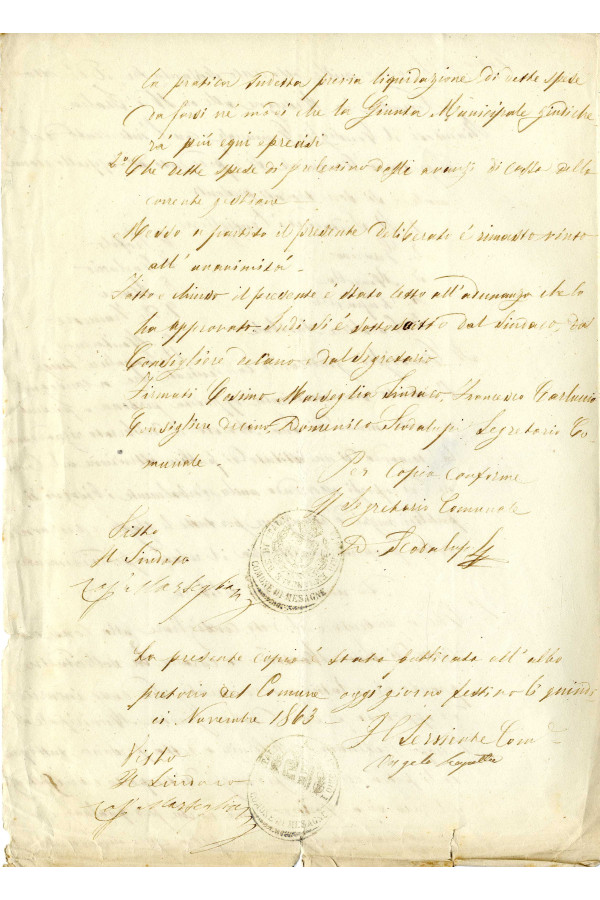 la pratica sudetta previa liquidazione di dette spese
da farsi ne' modi che la Giunta Municipale giudiche
rà più equi e precisi
2° Che dette spese si prelevino dagli avanzi di cassa della
corrente gestione
Messo a partito il presente deliberato è rimasto vinto
all'unanimità.
Fatto e chiuso il presente è stato letto all'adunanza che lo
ha approvato. Indi si è sottoscritto dal Sindaco, da
Consigliere anziano, e dal Segretario
Firmati Cosimo Marseglia Sindaco, Francesco Carluccio
Consigliere decano, Domenico Scodalupi Segretario Co
munale.
Per copia conforme
Il Segretario Comunale
D. Scodalupi
Visto
Il Sindaco
Marseglia
COMUNE DI MESAGNE
La presente copia è stata pubblicata all'albo
pretorio del Comune oggi giorno festivo li quindi
ci Novembre 1863
Il Serviente Com
Angelo
Visto
Il Sindaco
Marseglia
COMUNE DI MESAGNE